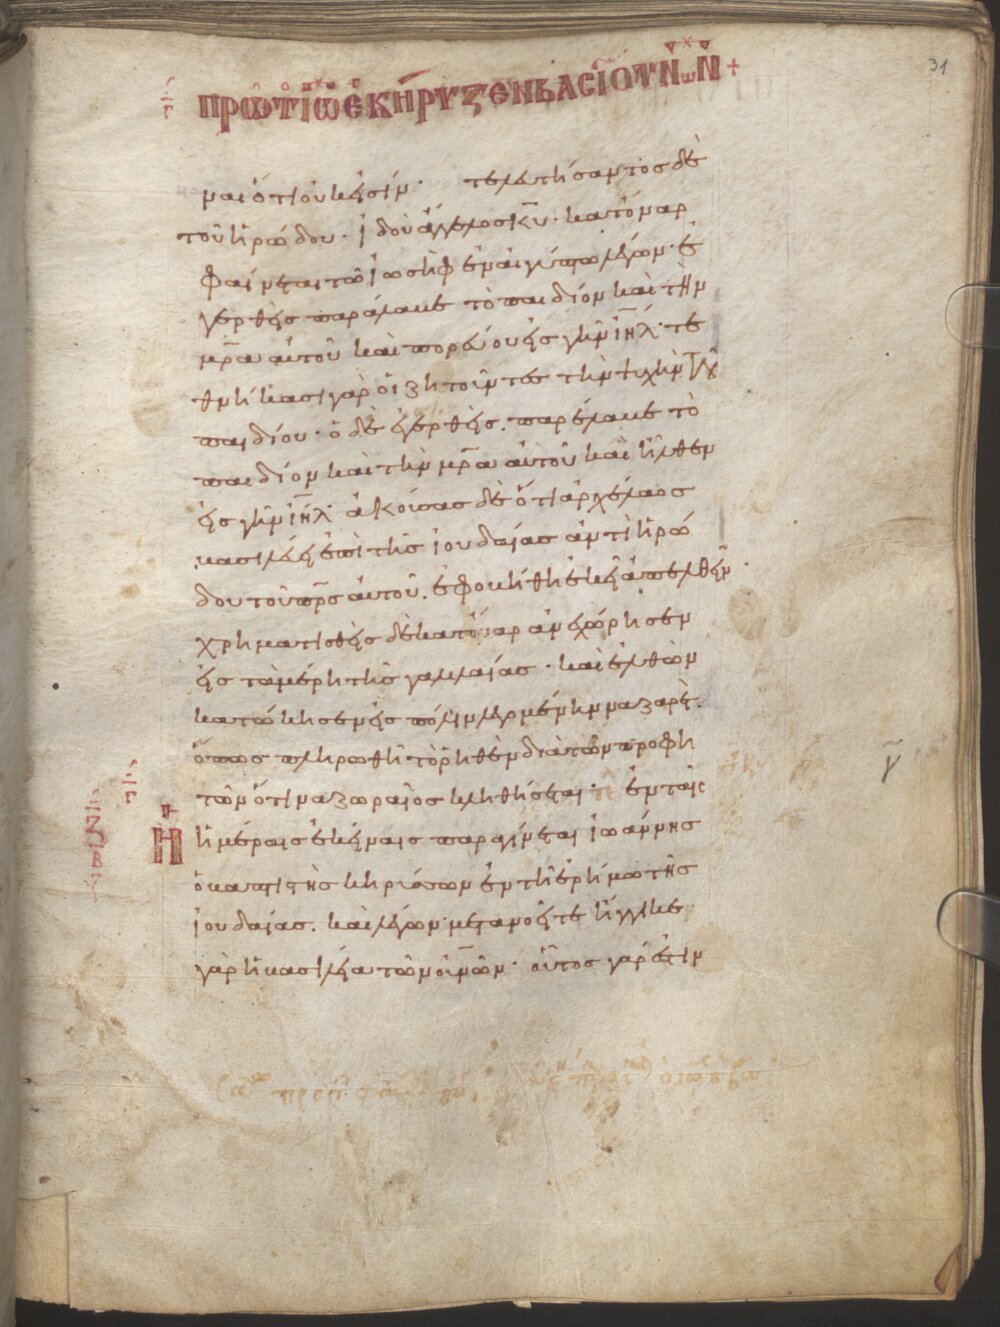 31
πρῶτ ἰω ἐκήρυξεν βασι οὐνων +
μαι ὅτι οὐκ εἰσίν · τελευτήσαντος δὲ
τοῦ ἡρώδου · ἰδοὺ ἄγγελος κ̅υ̅ · κατόναρ
φαίνεται τῶ ἰωσὴφ ἐν αἰγύπτω λέγων · ἐ
γερθεὶς παράλαβε τὸ παιδίον καὶ τὴν
μ̅ρ̅α αὐτοῦ καὶ πορεύου εἰς γῆν ι̅η̅λ · τε
θνήκασι γὰρ οἱ ζητοῦντες τὴν ψυχὴν τοῦ
παιδίου · ὁ δὲ ἐγερθεὶς . παρέλαβε τὸ
παιδίον καὶ τὴν μ̅ρ̅α αὐτοῦ καὶ ἦλθεν
εἰς γῆν ι̅η̅λ · ἀκούσας δὲ ὅτι ἀρχέλαος
βασιλεύει ἐπὶ τῆς ἰουδαίας ἀντὶ ἡρώ
δου τοῦ π̅ρ̅ς αὐτοῦ . ἐφοβήθη ἐκεῖ ἀπελθεῖν ·
χρηματισθεὶς δὲ κατόναρ ἀνεχώρησεν
εἰς τὰ μέρη τῆς γαλιλαίας · καὶ ἐλθὼν
κατώκησεν εἰς πόλιν λεγομένην ναζαρέτ .
ὅπως πληρωθῆ τὸ ῥηθὲν διὰ τῶν προφη
τῶν ὅτι ναζωραῖος κληθήσεται · ἐν ταῖς
ἡμέραις ἐκείναις παραγίνεται ἰωάννης
ὁ βαπτιστὴς κηρύσσων ἐν τῆ ἐρήμω τῆς
ἰουδαίας . καὶ λέγων · μετανοεῖτε ἤγγικε
γὰρ ἡ βασιλεία τῶν οὐ̅νῶν · οὗτος γάρ ἐστιν